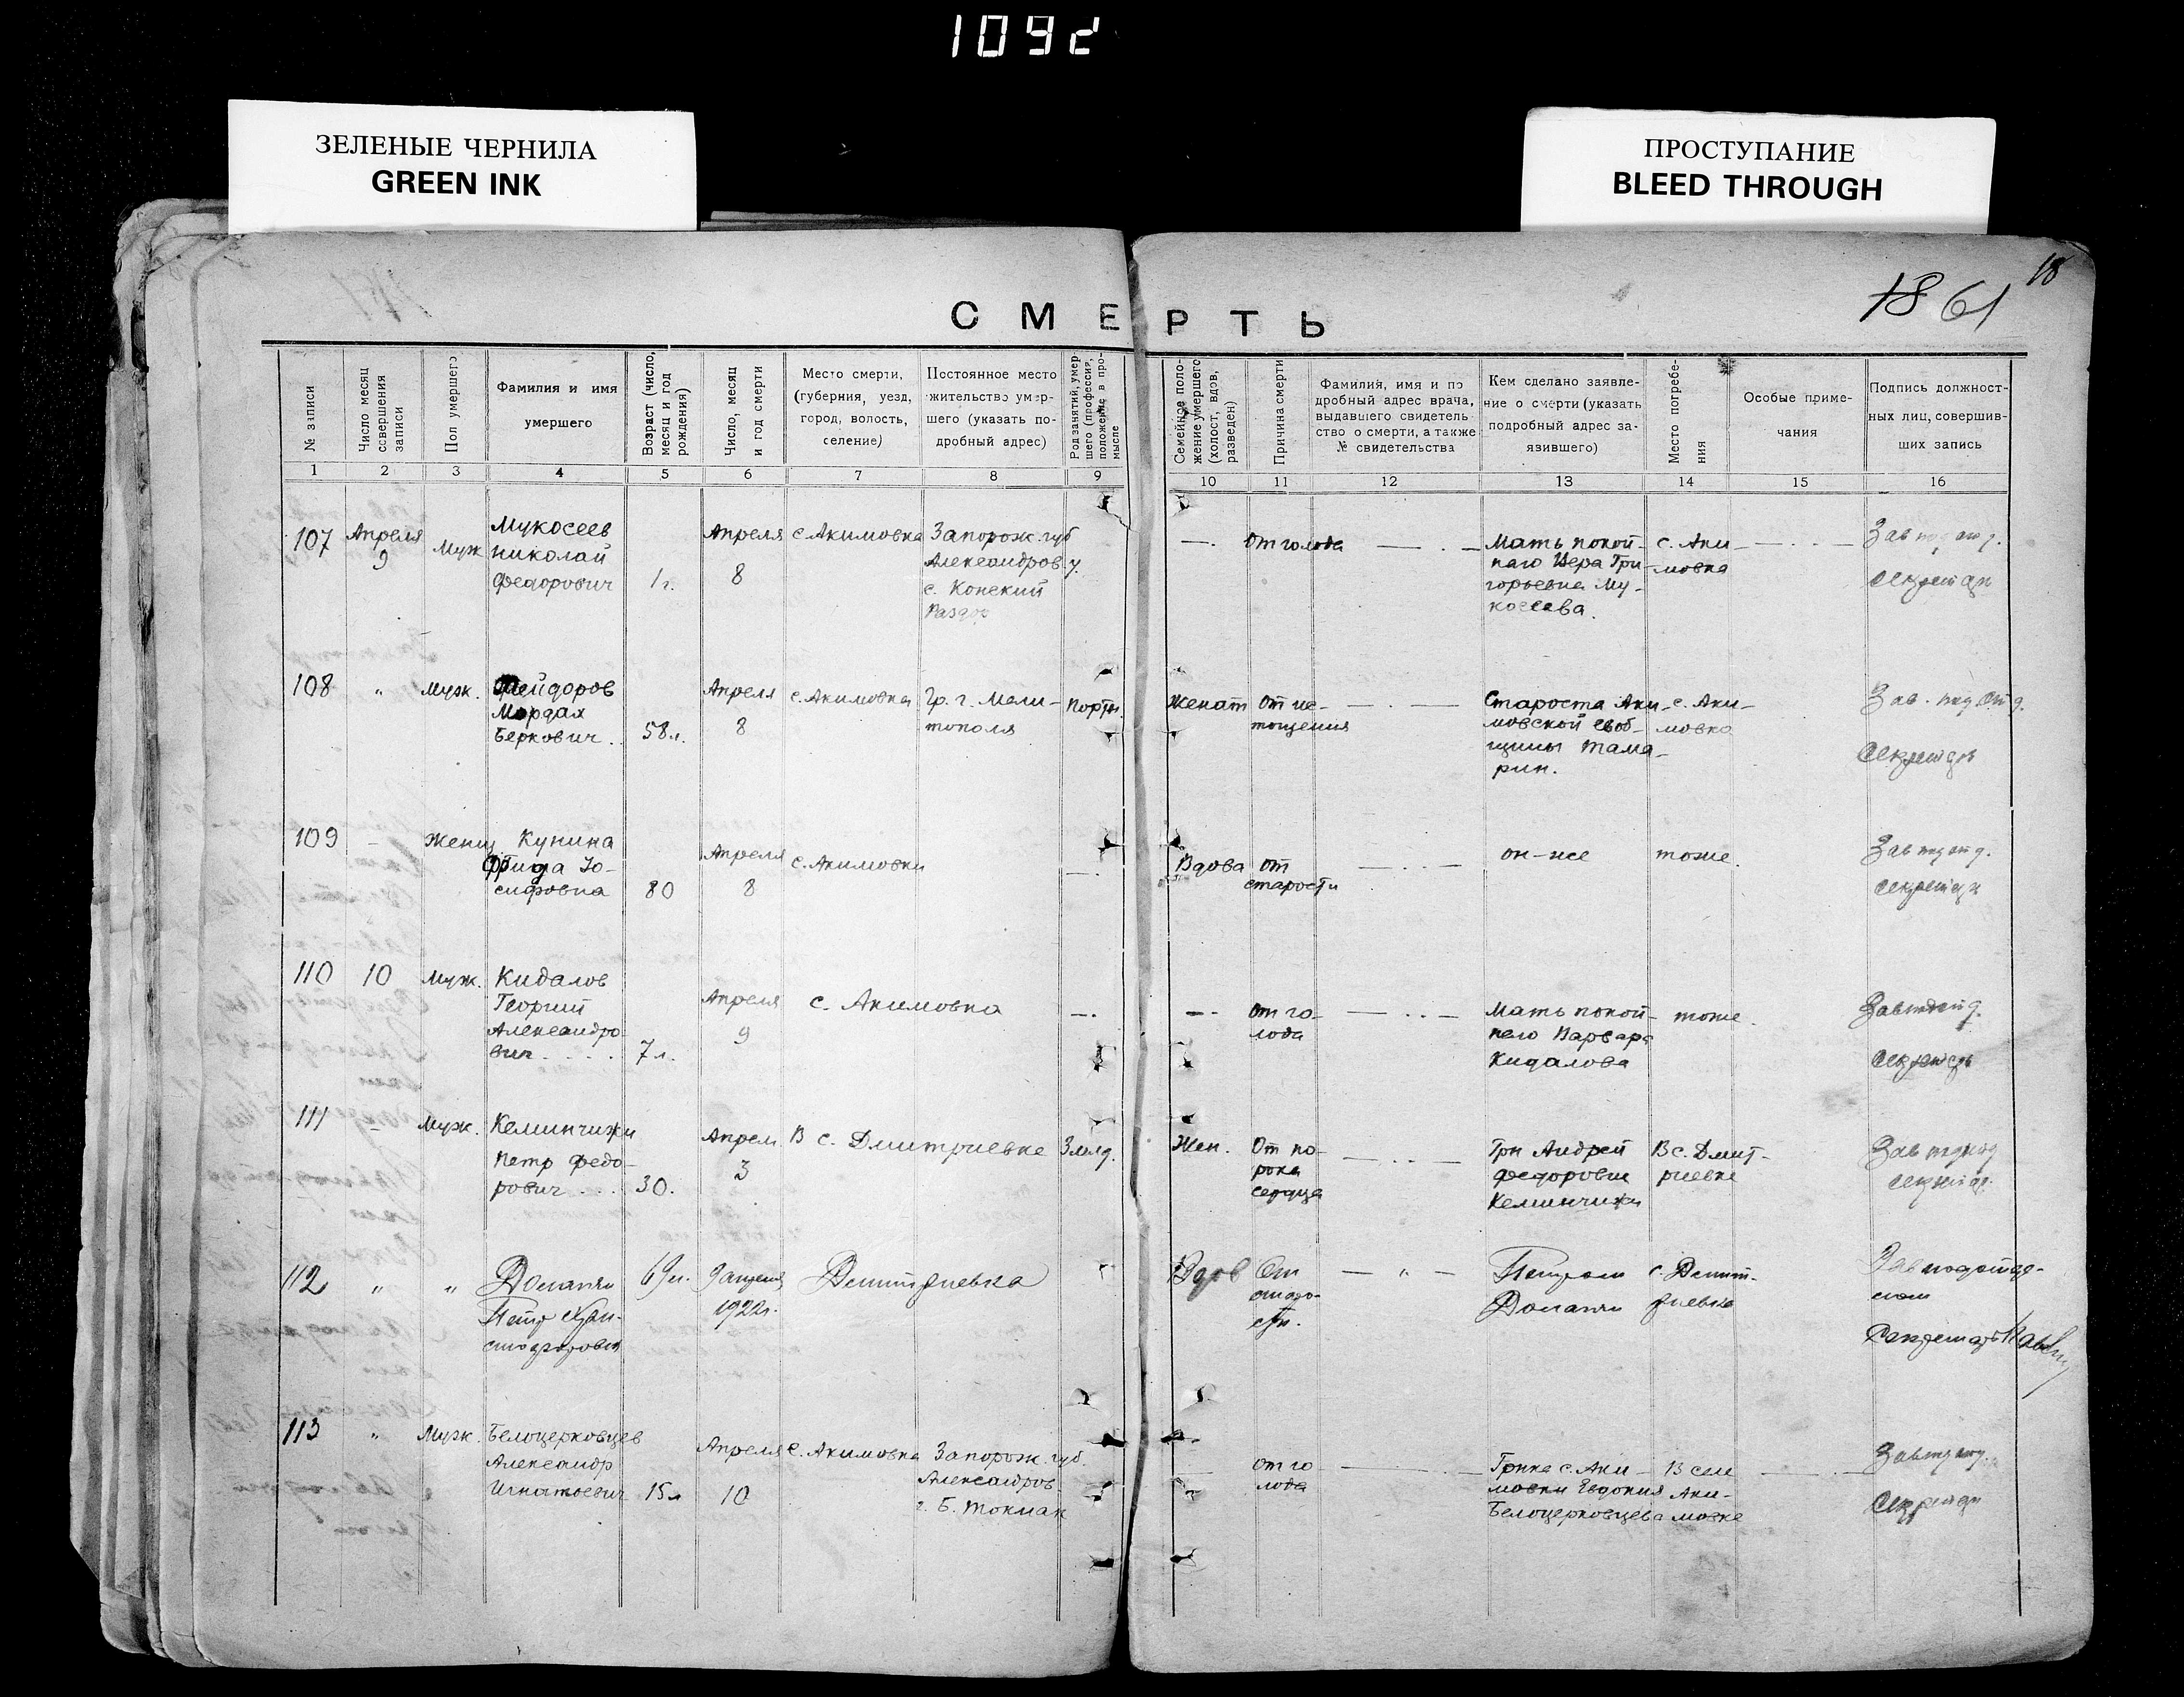 1092
ЗЕЛЕНЫЕ ЧЕРНИЛА
GREEN INK
ПРОСТУПАНИЕ
BLEED THROUGH
18
18 61
СМЕРТЬ
№ записи
Число месяц совершения записи
Пол умершего
Фамилия и имя умершего
Возраст (число, месяц и год рождения)
Число, месяц и год смерти
Место смерти, (губерния, уезд, город, волость, селение)
Постоянное место жительство умершего (указать подробный адрес)
Род занятий, умершего (профессия, положение в промысле
Семейное положение умершего (холост, вдов, разведен)
Причина смерти
Фамилия, имя и подробный адрес врача, выдавшего свидетельство о смерти, а также № свидетельства
Кем сделано заявление о смерти (указать подробный адрес заявившего)
Место погребения
Особые примечания
Подпись должностных лиц, совершивших запись
1 2 3 4 5 6 7 8 9 10 11 12 13 14 15 16
107 Апреля 9 Муж Мукосеев Николай Федорович 1 г. Апреля 8 с. Акимовка Запорож. губ Александров. у. с. Конский Раздор
—. От голода — . — Мать покойнаго Вера Григорьевна Мукосеева. с. Акимовка — . — Зав под отд. Секретарь
108 " Муж. Мордах Беркович . 58 л. Апреля 8 с. Акимовка Гр. г. Мелитополя Портн.
Женат От истощения — . — Староста Акимовской Тамарин. с. Акимовка Зав. под. отд. Секретарь
109 – Женщ Кунина Фрида Иосифовна 80 Апреля 8 с. Акимовки —.
Вдова от старости — . — он-же тоже. Зав под отд. Секретарь
110 10 Муж. Кидалов Георгий Александрович . . . . 7 л. Апреля 9 с. Акимовка —.
—. От голода — . . — Мать покойнаго Варвара Кидалова тоже. Зав под отд. Секретарь
111 – Муж. Кеминчижи Петр Федорович . . . 30. Апрел. 3 В с. Дмитриевке Землед.
Жен. От порока сердца — . . — Грн Андрей Федорович Кеминчижи В с. Дмитриевке Зав подотд Секретарь
112 " " Петр 69 л. 9 апреля 1922 г. Дмитриевка
Вдов От старости. — " — с. Дмитриевка Зав подотделом Секретарь
113 " Муж. Белоцерковцев Александр Игнатьевич 15 л Апреля 10 с. Акимовка Запорож. губ. Александров. г. Б. Токмак
От голода — . — Грнка с. Акимовки Евдокия Белоцерковцева В селе Акимовке — . — Зав под отд. Секретарь